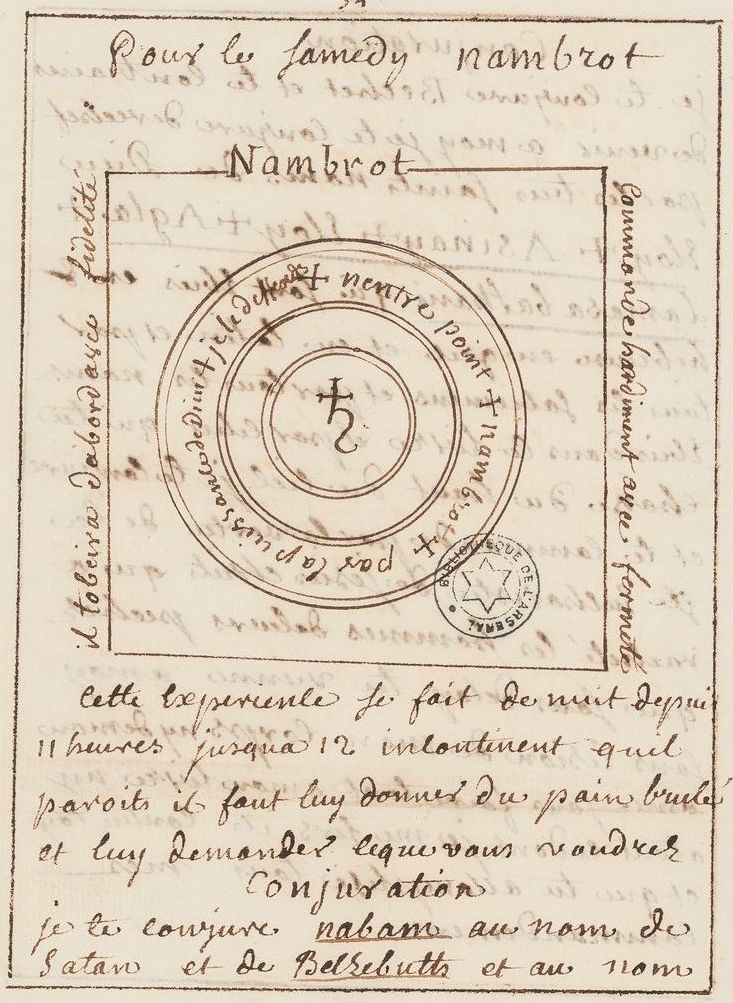 Pour le samedy nambrot
Nambrot
il tobeira dabord avec fidelité
Commande hardiment avec fermeté
+ nentre point + nambrot +
par la puissance de Dieu + je le deffends
♄
BIBLIOTHÈQUE DE L'ARSENAL
Cette Experience se fait de nuit depuis
11 heures jusqua 12 incontinent quil
paroits il faut luy donner du pain brulé
et luy demander ceque vous voudrez
Conjuration
je te conjure nabam au nom de
Satan et de Belzebutts et au nom